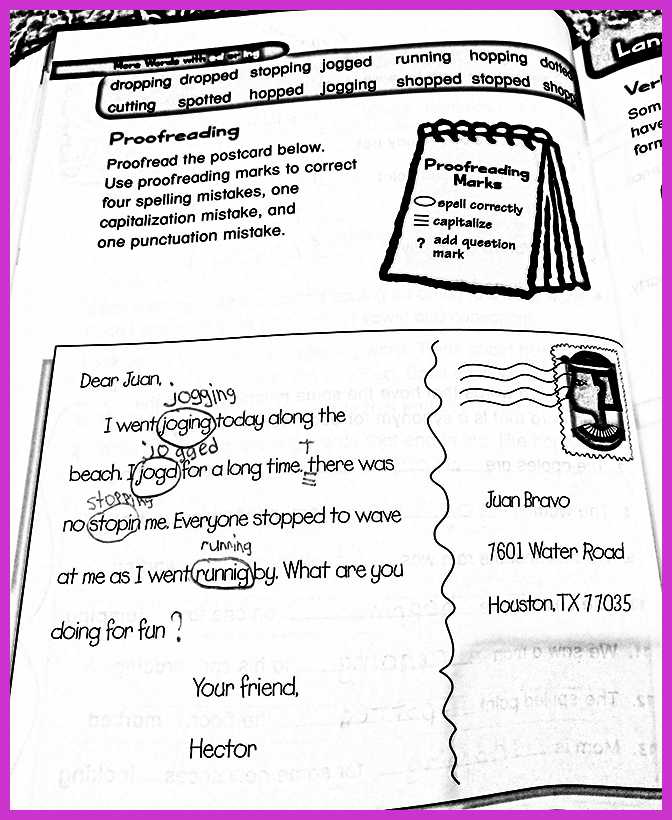 More Words with -ed or -ing
dropping dropped stopping jogged running hopping dotted
cutting spotted hopped jogging shopped stopped
Proofreading
Proofread the postcard below.
Use proofreading marks to correct
four spelling mistakes, one
capitalization mistake, and
one punctuation mistake.
Proofreading
Marks
spell correctly
capitalize
? add question
mark
Dear Juan,
jogging
I went joging today along the
jogged T
beach. I jogd for a long time. there was
stopping
no stopin me. Everyone stopped to wave
running
at me as I went runnig by. What are you
doing for fun ?
Your friend,
Hector
Juan Bravo
7601 Water Road
Houston, TX 77035
Lan
Ver
Som
have
form